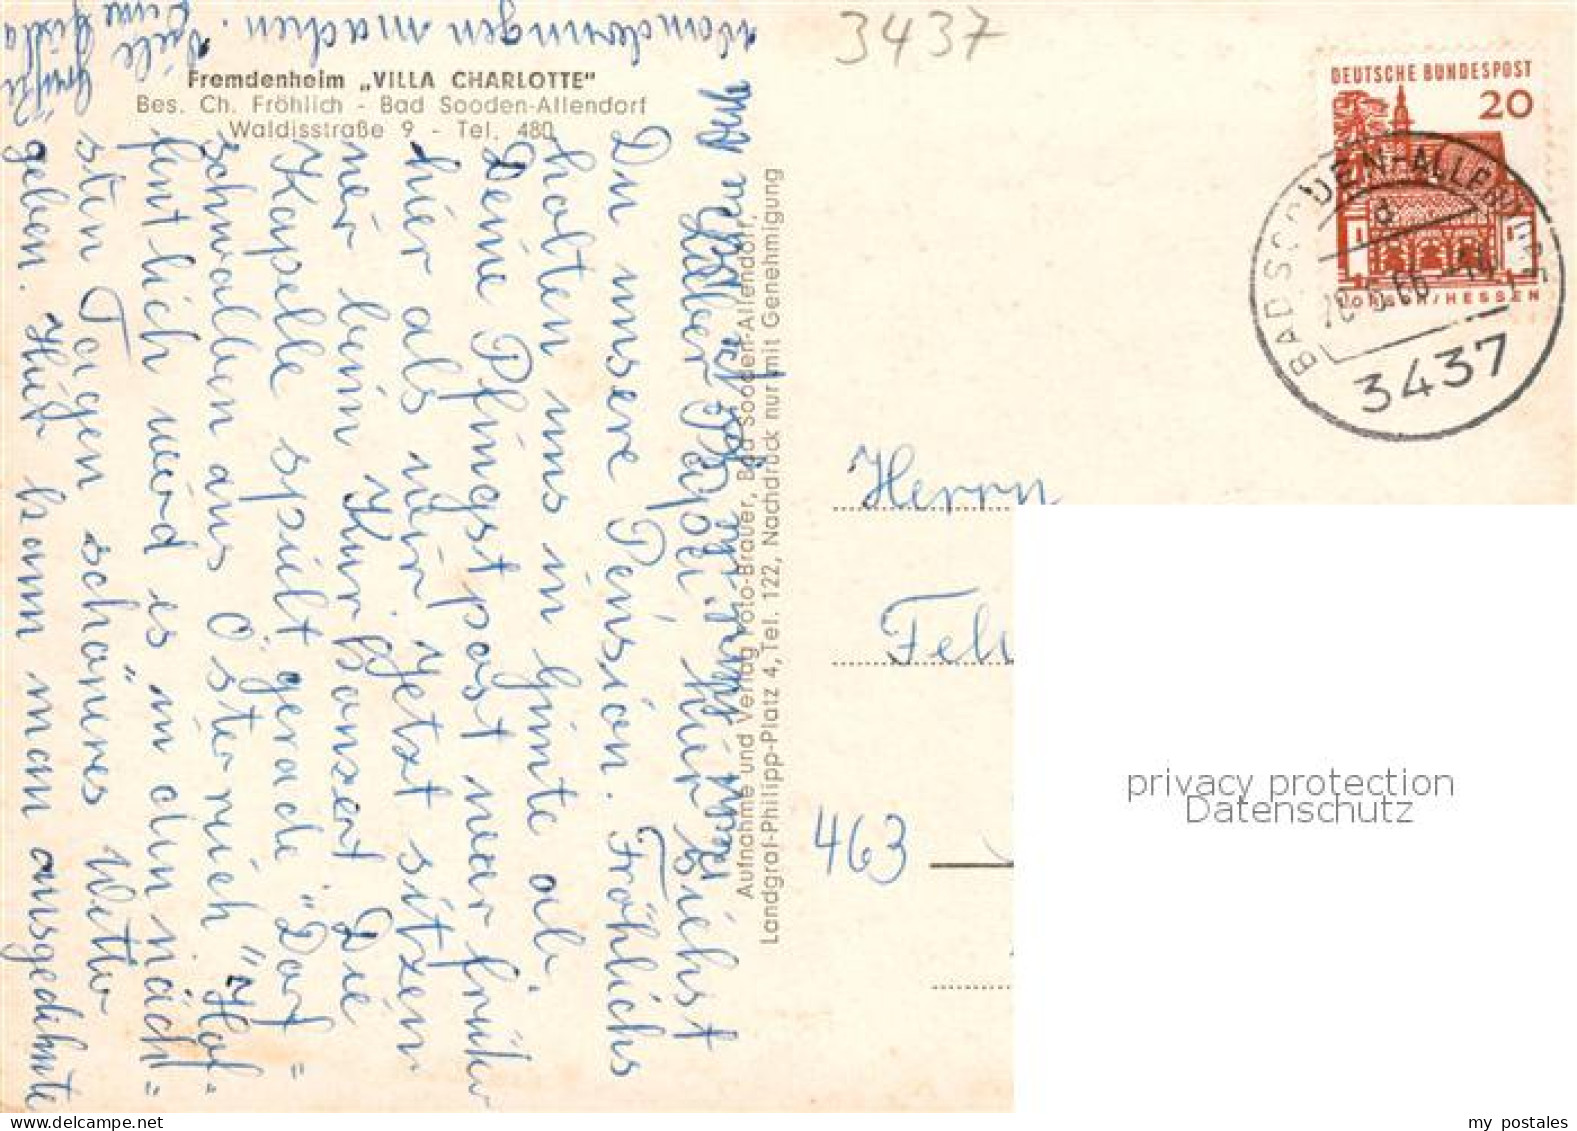 3437
Fremdenheim „VILLA CHARLOTTE"
Bes. Ch. Fröhlich - Bad Sooden-Allendorf
Waldisstraße 9 - Tel. 480
DEUTSCHE BUNDESPOST
20
LORSCH/HESSEN
BAD SOODEN-ALLENDORF
d
3437
Aufnahme und Verlag Foto-Brauer, Bad Sooden-Allendorf,
Landgraf-Philipp-Platz 4, Tel. 122, Nachdruck nur mit Genehmigung
Lieber Papa! Hier siehst
Du unsere Pension. Fröhlichs
holten uns in Gimte ab.
Deine Pfingstpost war früher
hier als wir. Jetzt sitzen
wir beim Kurkonzert. Die
Kapelle spielt gerade "Dorf=
schwalben aus Österreich" Hof=
fentlich wird es in den näch=
sten Tagen schöneres Wetter
geben. Hier kann man ausgedehnte
Wanderungen machen.
Viele Grüße
Herrn
463
privacy protection
Datenschutz
my postales